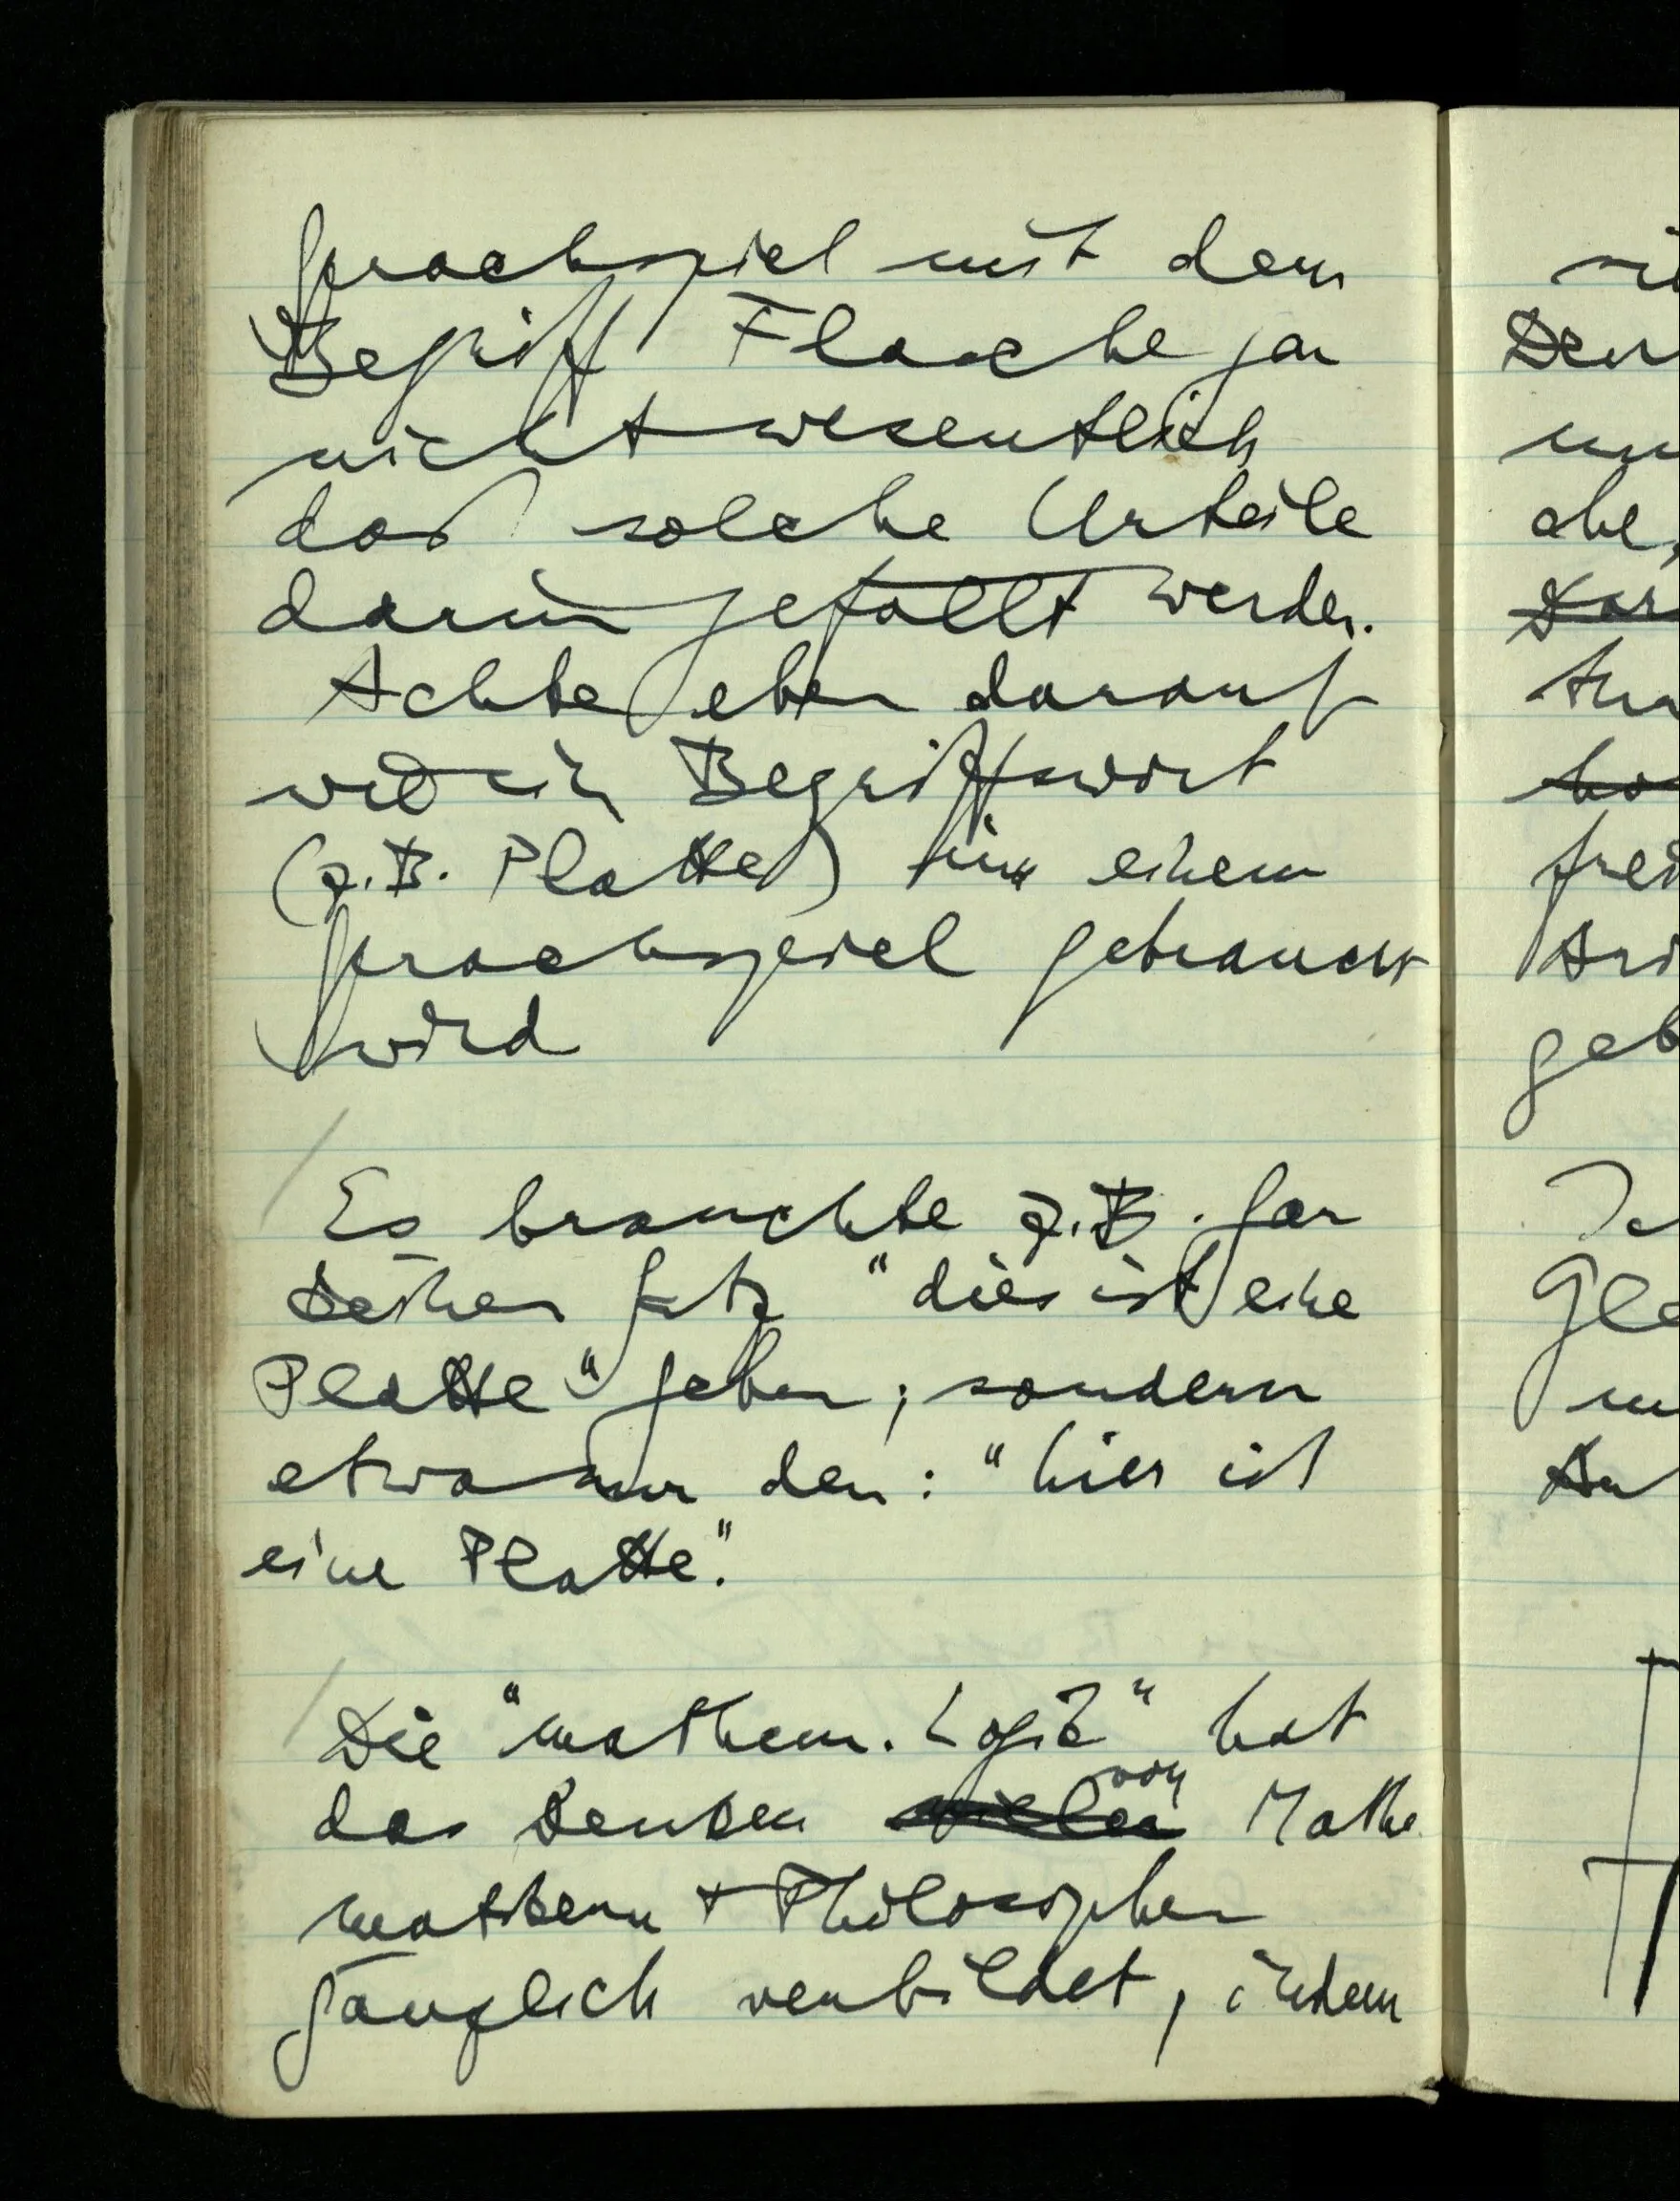 Sprachspiel mit dem
Begriff Flasche gar
nicht wesentlich
daß solche Urteile
darin gefällt werden.
Achte eben darauf
wie ein Begriffswort
(z.B. Platte) in einem
Sprachspiel gebraucht
wird
Es brauchte z.B. gar
keinen Satz "dies ist eine
Platte" geben; sondern
etwa nur den: "hier ist
eine Platte".
Die "mathem. Logik" hat
von
das Denken vielen Mathe
matikern + Philosophen
gänzlich verbildet, indem